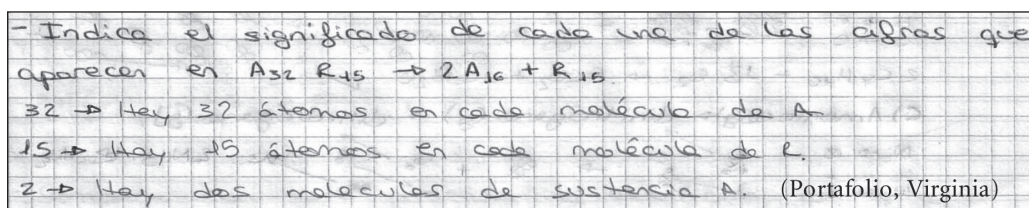 - Indica el significado de cada una de las cifras que
aparecen en A₃₂ R₁₅ → 2 A₁₆ + R₁₅.
32 → Hay 32 átomos en cada molécula de A
15 → Hay 15 átomos en cada molécula de R.
2 → Hay dos moleculas de sustancia A. (Portafolio, Virginia)